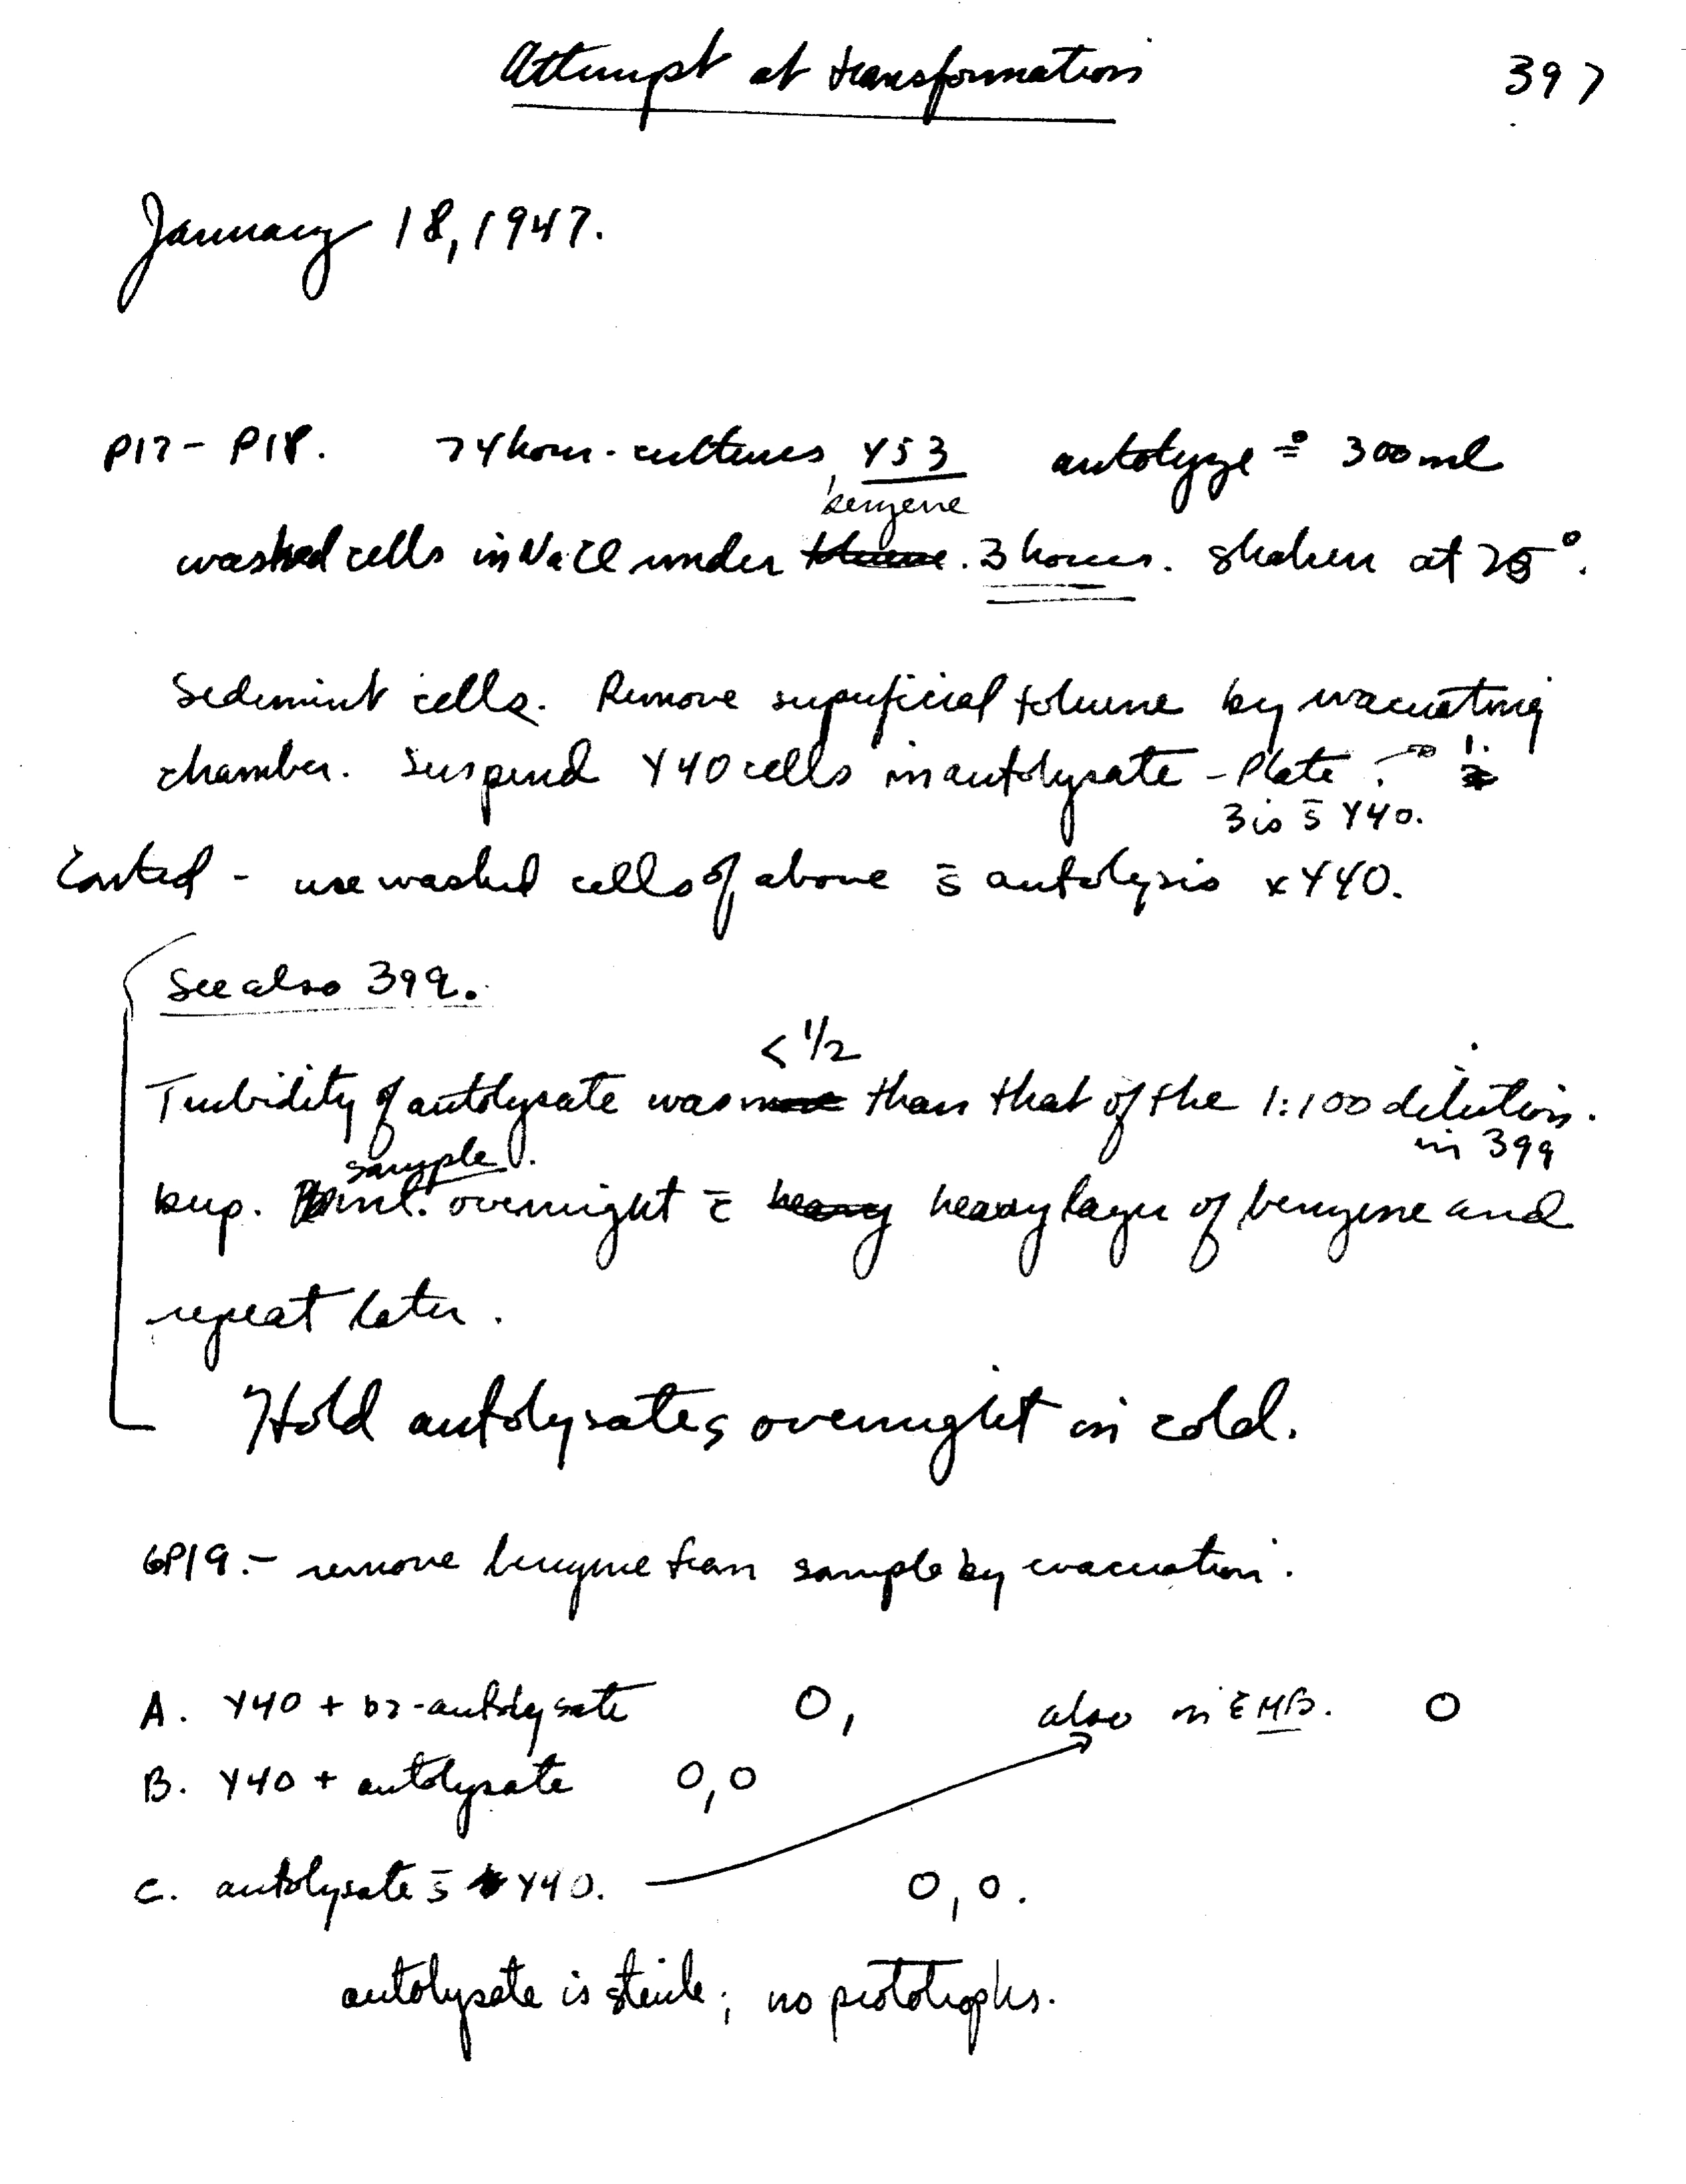 Attempt at transformation 397
January 18, 1947.
P17 - P18. 24 hour cultures, Y53 autolyze ≑ 300 ml
benzene
washed cells in NaCl under toluene. 3 hours. shaken at 25°.
Sediment cells. Remove superficial toluene by evacuating
chamber. Suspend Y40 cells in autolysate - Plate 1.
3 is s̄ Y40.
Control - use washed cells of above s̄ autolysis x Y40.
See also 399.
< 1/2
Turbidity of autolysate was more than that of the 1:100 dilution.
in 399
sample
Keep. ml. overnight c̄ heavy heavy layer of benzene and
repeat later.
Hold autolysates overnight in cold.
6P19. - remove benzene from sample by evacuation.
A. Y40 + bz-autolysate 0, also in EMB. 0
B. Y40 + autolysate 0,0
C. autolysate s̄ Y40. 0,0.
autolysate is sterile; no prototrophs.